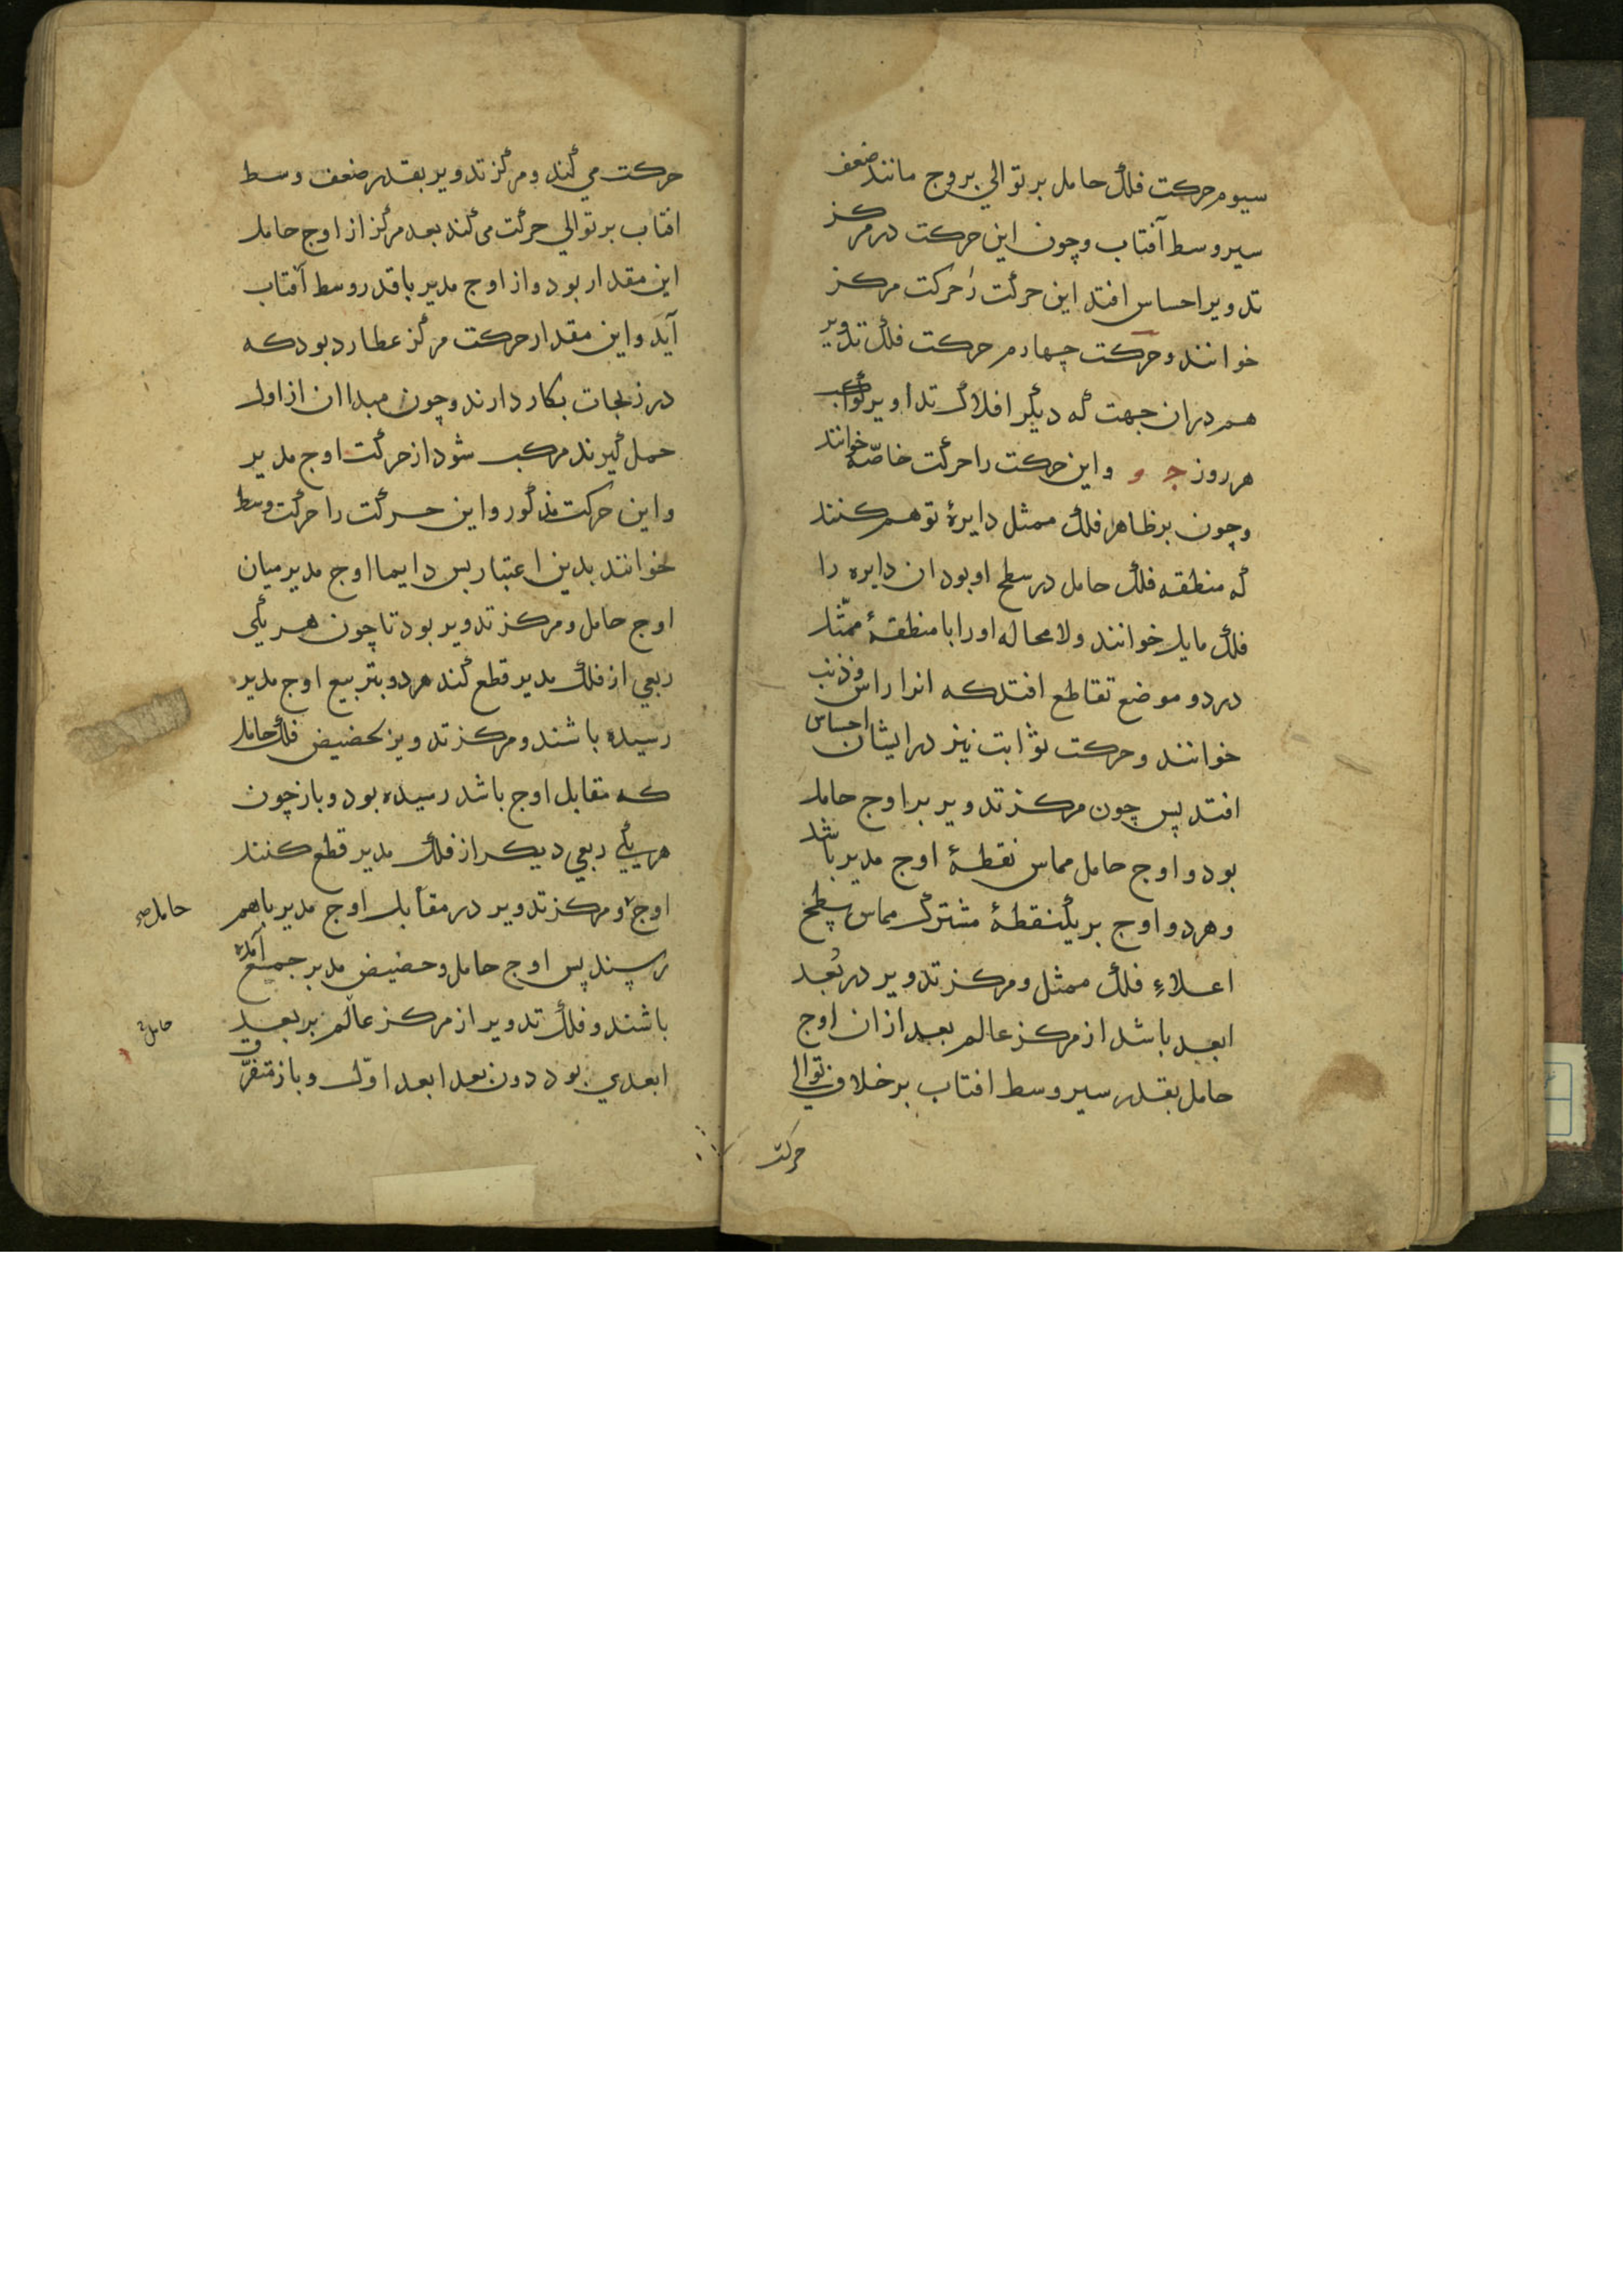 سیوم حرکت فلک حامل بر توالي بروج مانند ضعف
سیر وسط آفتاب وچون این حرکت در مرکز
تدویر احساس افتد این حرکت را حرکت مرکز
خوانند وحرکت چهارم حرکت فلک تدویر
هم دران جهت که دیگر افلاک تداویر کواکب
هر روز ج و واین حرکت را حرکت خاصّه خوانند
وچون بر ظاهر فلک ممثل دایرهٔ توهم کنند
که منطقه فلک حامل در سطح او بود ان دایره را
فلک مایل خوانند ولا محاله او را با منطقهٔ ممثّل
در دو موضع تقاطع افتد که انرا راس وذنب
خوانند وحرکت ثوابت نیز در ایشان احساس
افتد پس چون مرکز تدویر بر اوج حامل
بود و اوج حامل مماس نقطهٔ اوج مدیر باشد
وهر دو اوج بر یک نقطهٔ مشترک مماس سطح
اعلاءِ فلک ممثل ومرکز تدویر در بُعد
ابعد باشد از مرکز عالم بعد از ان اوج
حامل بقدر سیر وسط افتاب بر خلاف توالي
حرکت
حرکت مي کند ومرکز تدویر بقدر ضعف وسط
افتاب بر توالي حرکت می کند بعد مرکز از اوج حامل
این مقدار بود واز اوج مدیر باقدر وسط آفتاب
آید واین مقدار حرکت مرکز عطارد بود که
در زیجات بکار دارند وچون مبدا ان از اول
حمل گیرند مرکب شود از حرکت اوج مدیر
واین حرکت مذکور واین حرکت را حرکت وسط
خوانند بدین اعتبار پس دایما اوج مدیر میان
اوج حامل ومرکز تدویر بود تا چون هر یکی
ربعي از فلک مدیر قطع کند هر دو بتربیع اوج مدیر
رسیده باشند ومرکز تدویر بحضیض فلک حامل
که مقابل اوج باشد رسیده بود وباز چون
هر یکي ربعي دیکر از فلک مدیر قطع کنند
اوج ومرکز تدویر در مقابل اوج مدیر باهم
حامل صح
رسند پس اوج حامل وحضیض مدیر جمع آمده
باشند وفلک تدویر از مرکز عالم بر بعد
حامل
ابعدي بود دون بعد ابعد اوّل وباز متفرّق